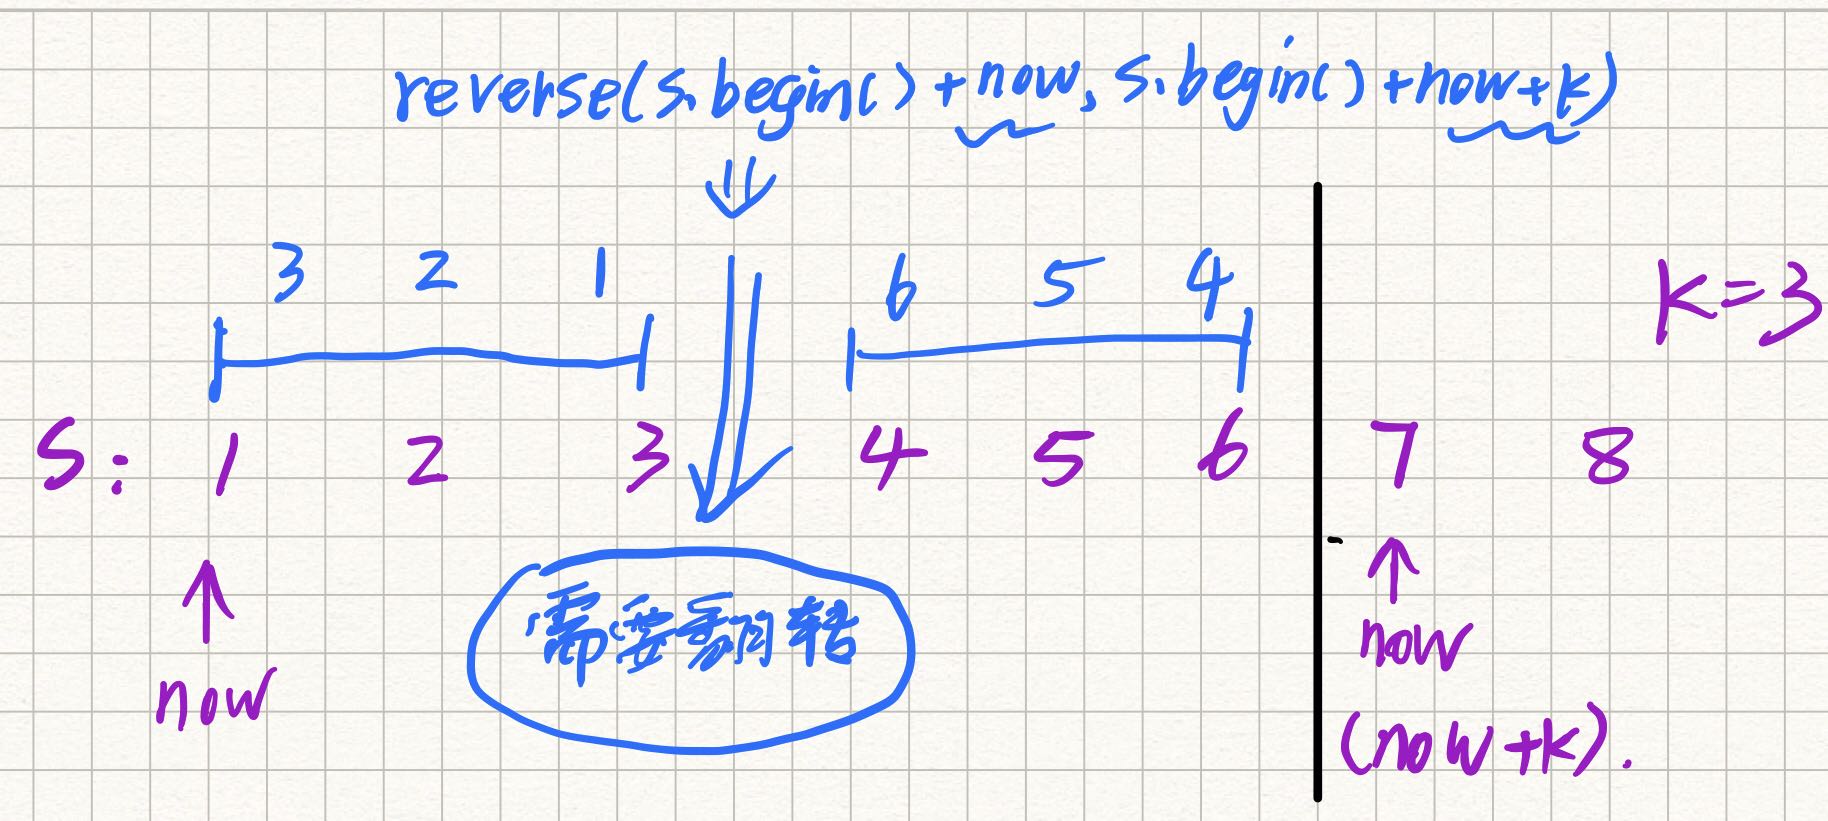 reverse(s.begin()+now, s.begin()+now+k)
3 2 1 6 5 4
k=3
S: 1 2 3 4 5 6 7 8
需要翻转
now
now
(now+k).